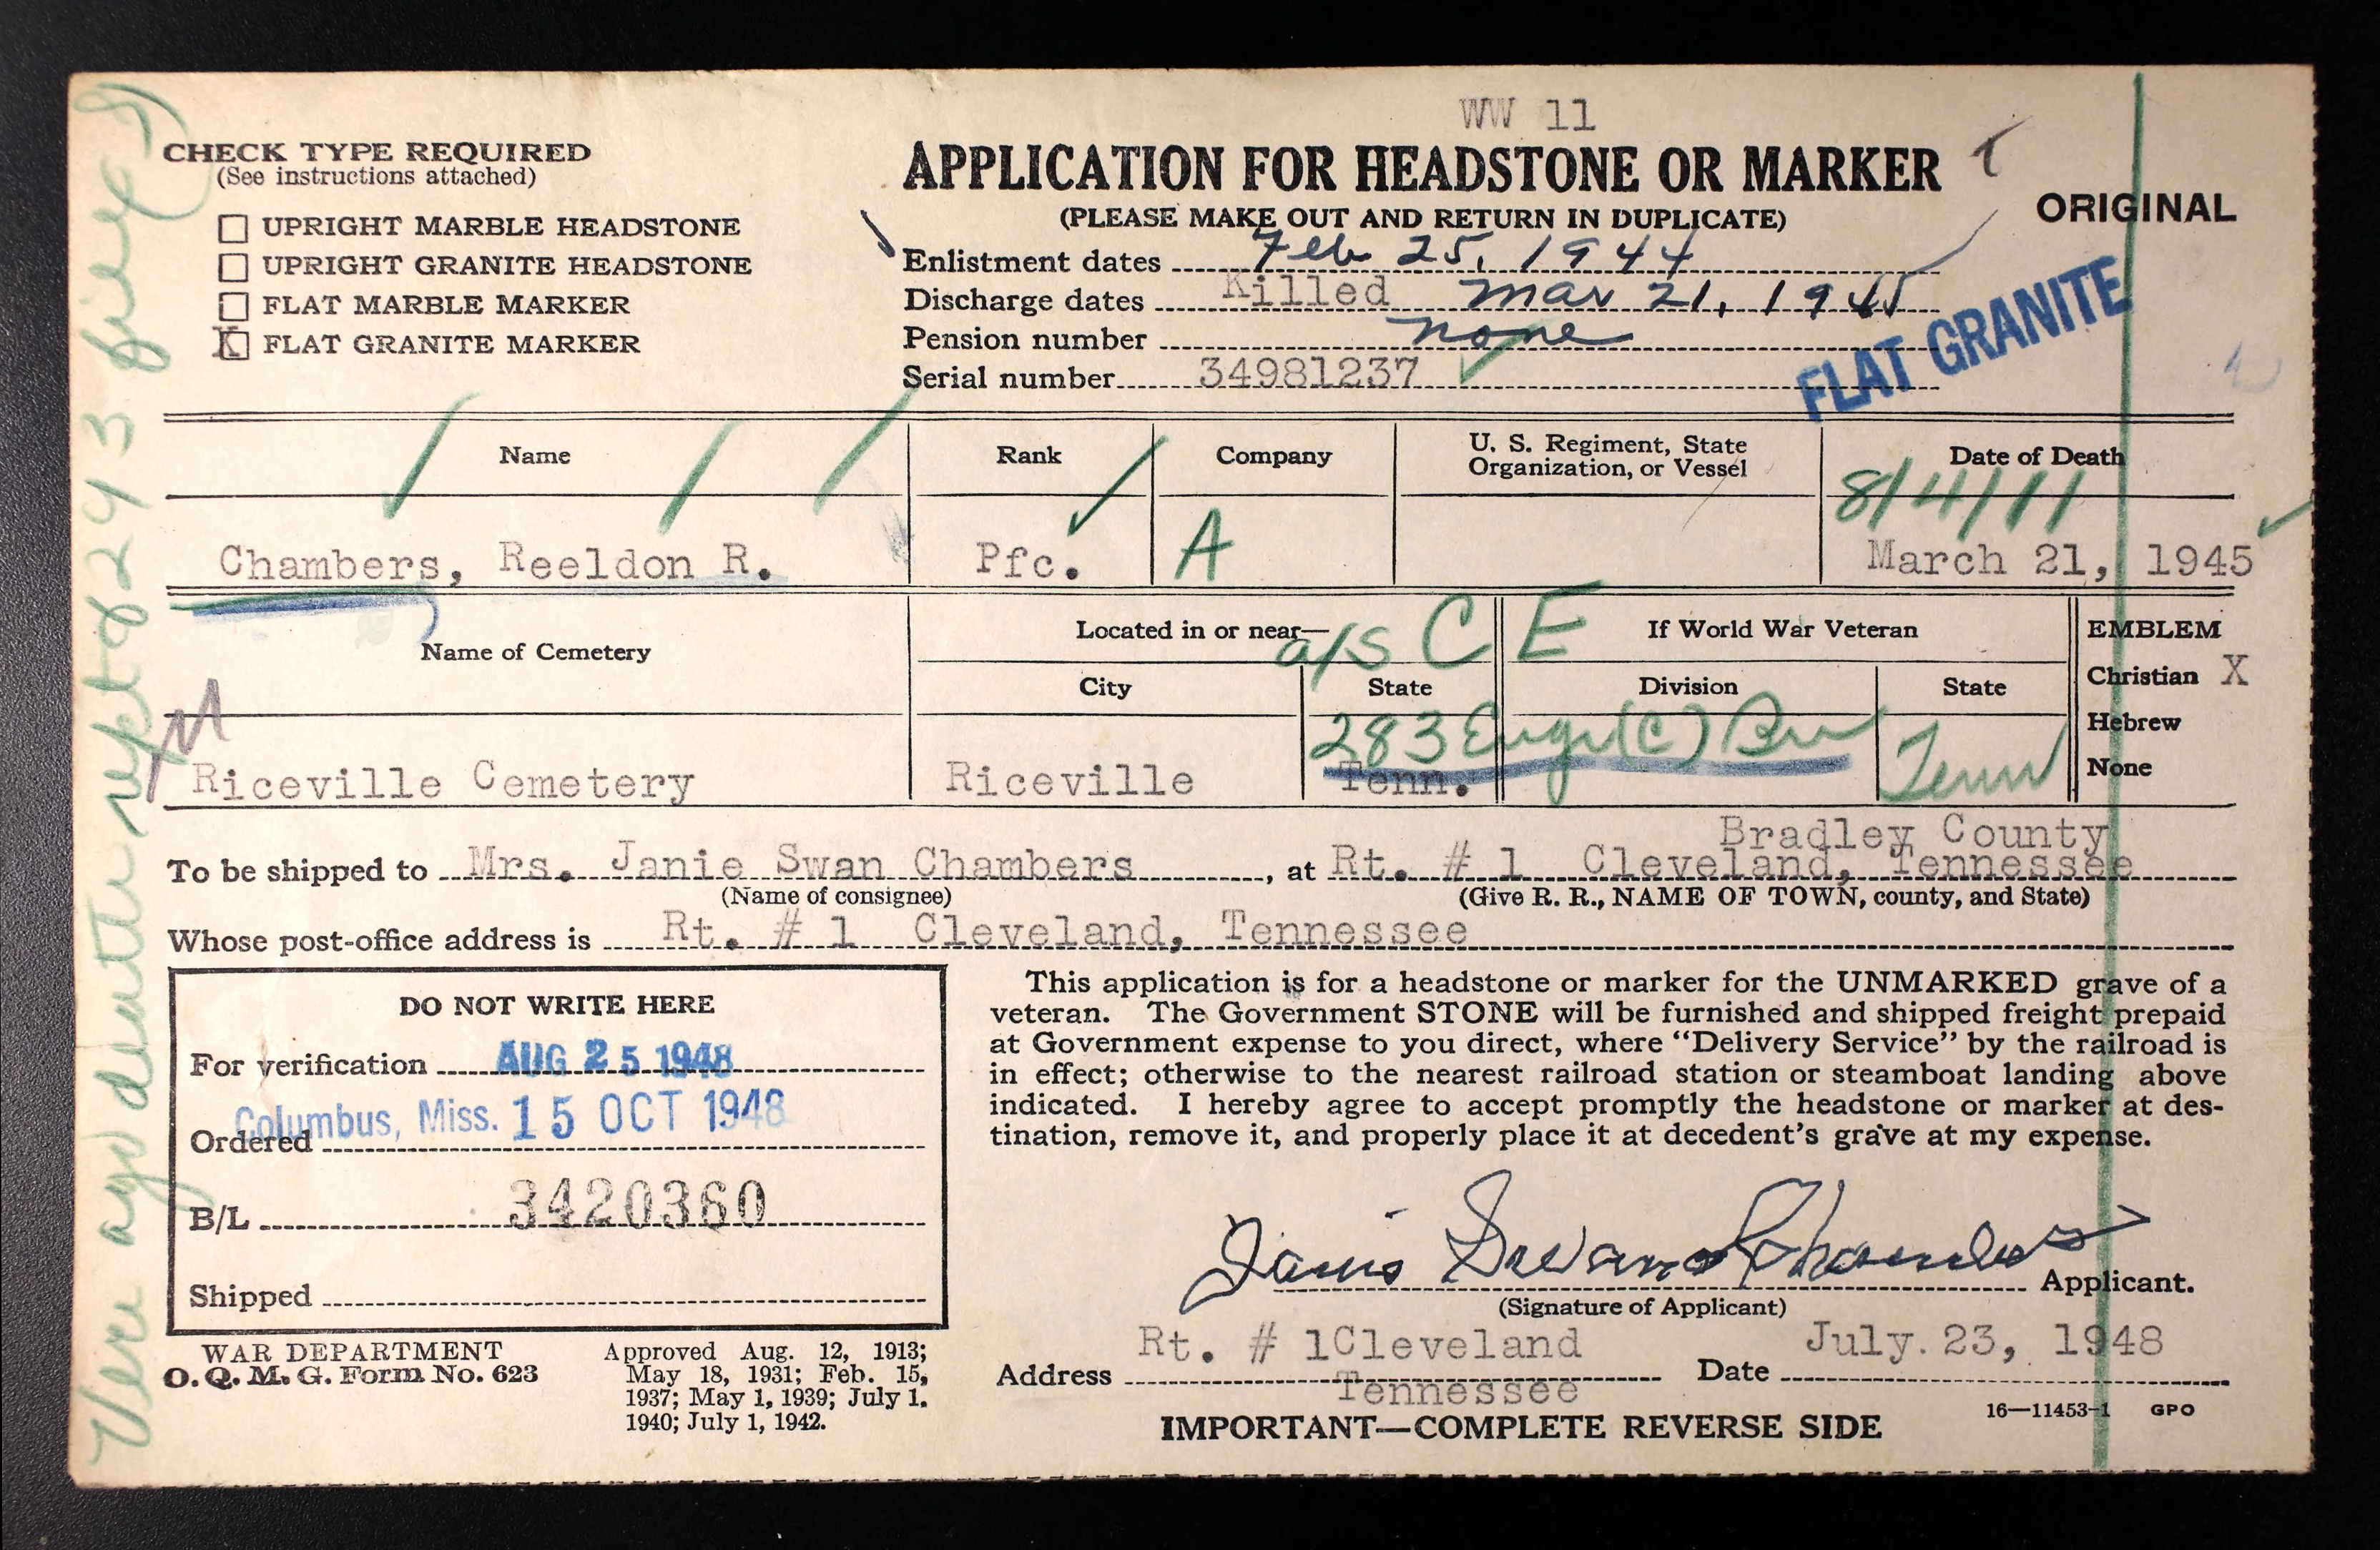 WW 11
CHECK TYPE REQUIRED
(See instructions attached)
UPRIGHT MARBLE HEADSTONE
UPRIGHT GRANITE HEADSTONE
FLAT MARBLE MARKER
X FLAT GRANITE MARKER
APPLICATION FOR HEADSTONE OR MARKER
(PLEASE MAKE OUT AND RETURN IN DUPLICATE)
ORIGINAL
Enlistment dates Feb 25, 1944
Discharge dates Killed Mar 21, 1945
Pension number none
Serial number 34981237
FLAT GRANITE
Name Rank Company U. S. Regiment, State Organization, or Vessel Date of Death
8/4/11
Chambers, Reeldon R. Pfc. A March 21, 1945
Name of Cemetery Located in or near— a/s C E If World War Veteran EMBLEM
City State Division State Christian X
Hebrew
283 Engr (C) Bn Tenn
None
Riceville Cemetery Riceville Tenn.
Bradley County
To be shipped to Mrs. Janie Swan Chambers, at Rt. # 1 Cleveland, Tennessee
(Name of consignee) (Give R. R., NAME OF TOWN, county, and State)
Whose post-office address is Rt. # 1 Cleveland, Tennessee
DO NOT WRITE HERE
For verification AUG 25 1948
Columbus, Miss. 15 OCT 1948
Ordered
B/L 3420360
Shipped
This application is for a headstone or marker for the UNMARKED grave of a
veteran. The Government STONE will be furnished and shipped freight prepaid
at Government expense to you direct, where “Delivery Service” by the railroad is
in effect; otherwise to the nearest railroad station or steamboat landing above
indicated. I hereby agree to accept promptly the headstone or marker at des-
tination, remove it, and properly place it at decedent's grave at my expense.
Janie Swan Chambers Applicant.
(Signature of Applicant)
Rt. # 1Cleveland July. 23, 1948
Address Date
Tennessee
IMPORTANT—COMPLETE REVERSE SIDE
16—11453-1 GPO
WAR DEPARTMENT
O. Q. M. G. Form No. 623
Approved Aug. 12, 1913;
May 18, 1931; Feb. 15,
1937; May 1, 1939; July 1,
1940; July 1, 1942.
Veri ago death rept 8293 file